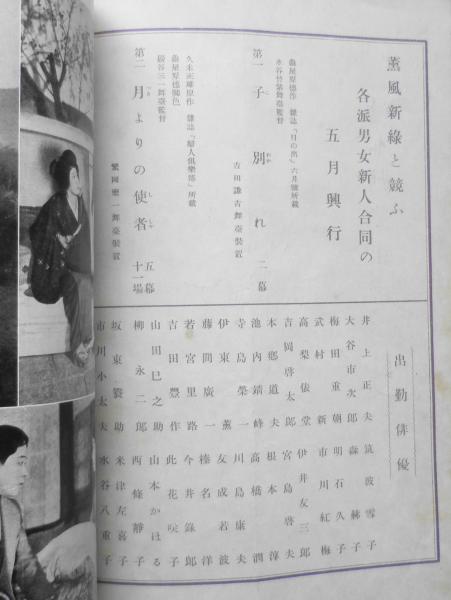 薫風新綠と競ふ
各派男女新人合同の
五月興行
巖谷三一舞臺監督
第一 子別れ 二幕
吉田謙吉舞臺裝置
久米正雄原作 雜誌「婦人俱樂部」所載
第二 月よりの使者 五幕
十一場
繁岡鑒一舞臺裝置
出勤俳優
井上正夫 筑波雪子
大谷市次郎 森赫子
梅田重朝 明石久子
武村新 市川紅梅
高梨俵堂 伊井友三郎
吉岡啓太郎 宮島啓夫
本鄕道夫 根本淳
池内靖峰 高橋潤
寺島榮一 川島康夫
伊東薫 友成若波
藤間廣一 榛名洋
若宮里路 今井錄郎
吉田豐作 此花咲子
山田巳之助 山本かほる
柳永二郎 西條靜子
坂東簑助 米津左喜子
市川小太夫 水谷八重子